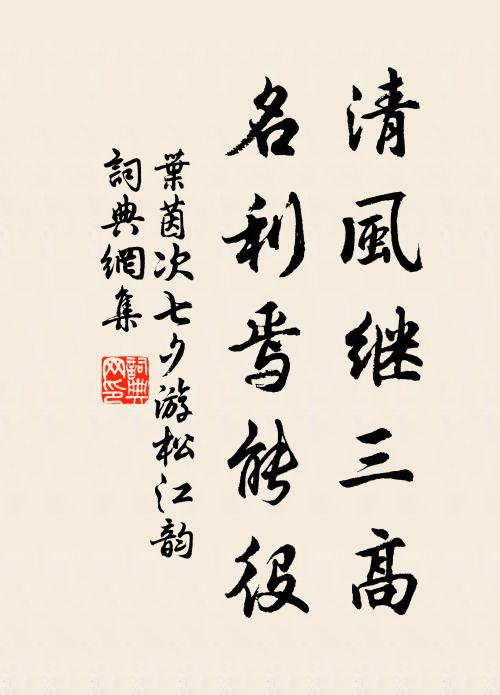 清風继三高
名利焉能役
葉茵次七夕游松江韵
詞典網集
詞典網印